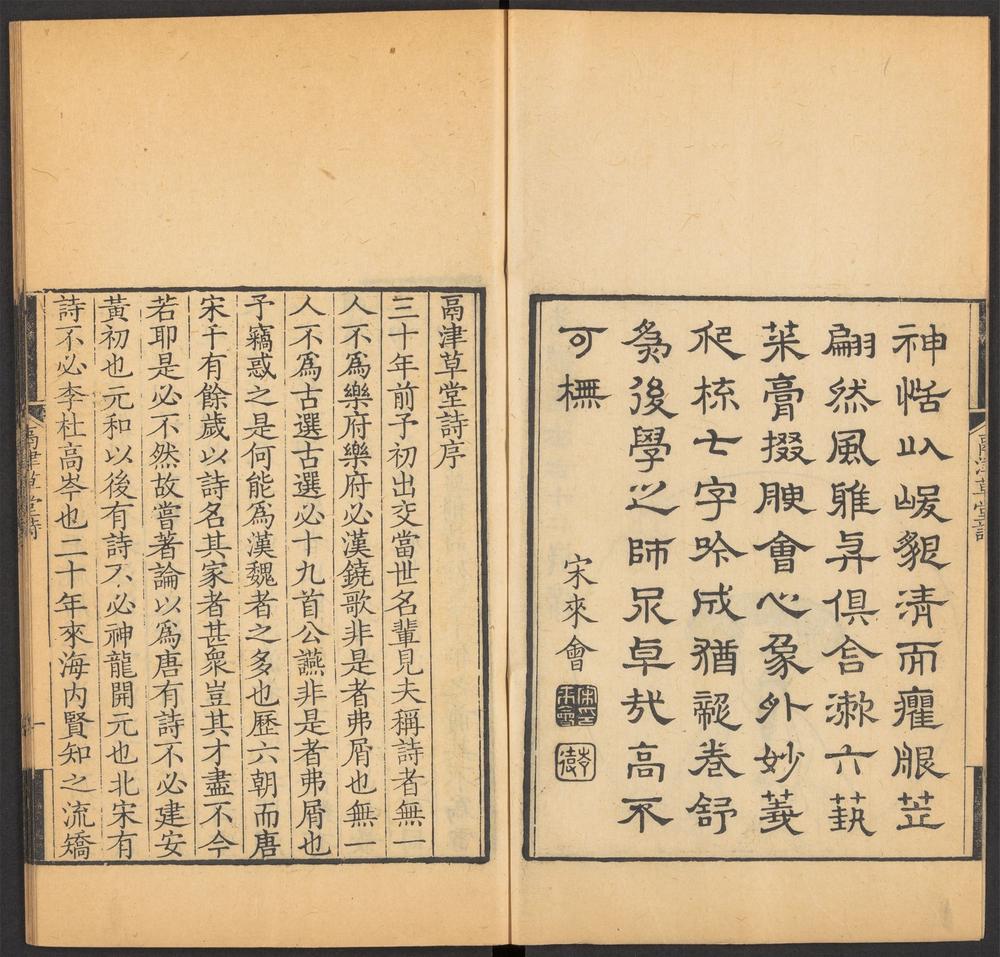 神恬以峻貌清而癯服芷
翩然風雅與俱含漱六藝
菜膏掇腴會心象外妙義
爬梳七字吟成猶疑卷舒
爲後學之師卓哉高不
可橅
宋來會
鬲津草堂詩
鬲津草堂詩序
三十年前予初出交當世名輩見夫稱詩者無一
人不爲樂府樂府必漢鐃歌非是者弗屑也無一
人不爲古選古選必十九首公讌非是者弗屑也
予竊惑之是何能爲漢魏者之多也歷六朝而唐
宋千有餘歲以詩名其家者甚衆豈其才盡不今
若耶是必不然故嘗著論以爲唐有詩不必建安
黃初也元和以後有詩不必神龍開元也北宋有
詩不必李杜高岑也二十年來海內賢知之流矯
鬲津草堂詩
一